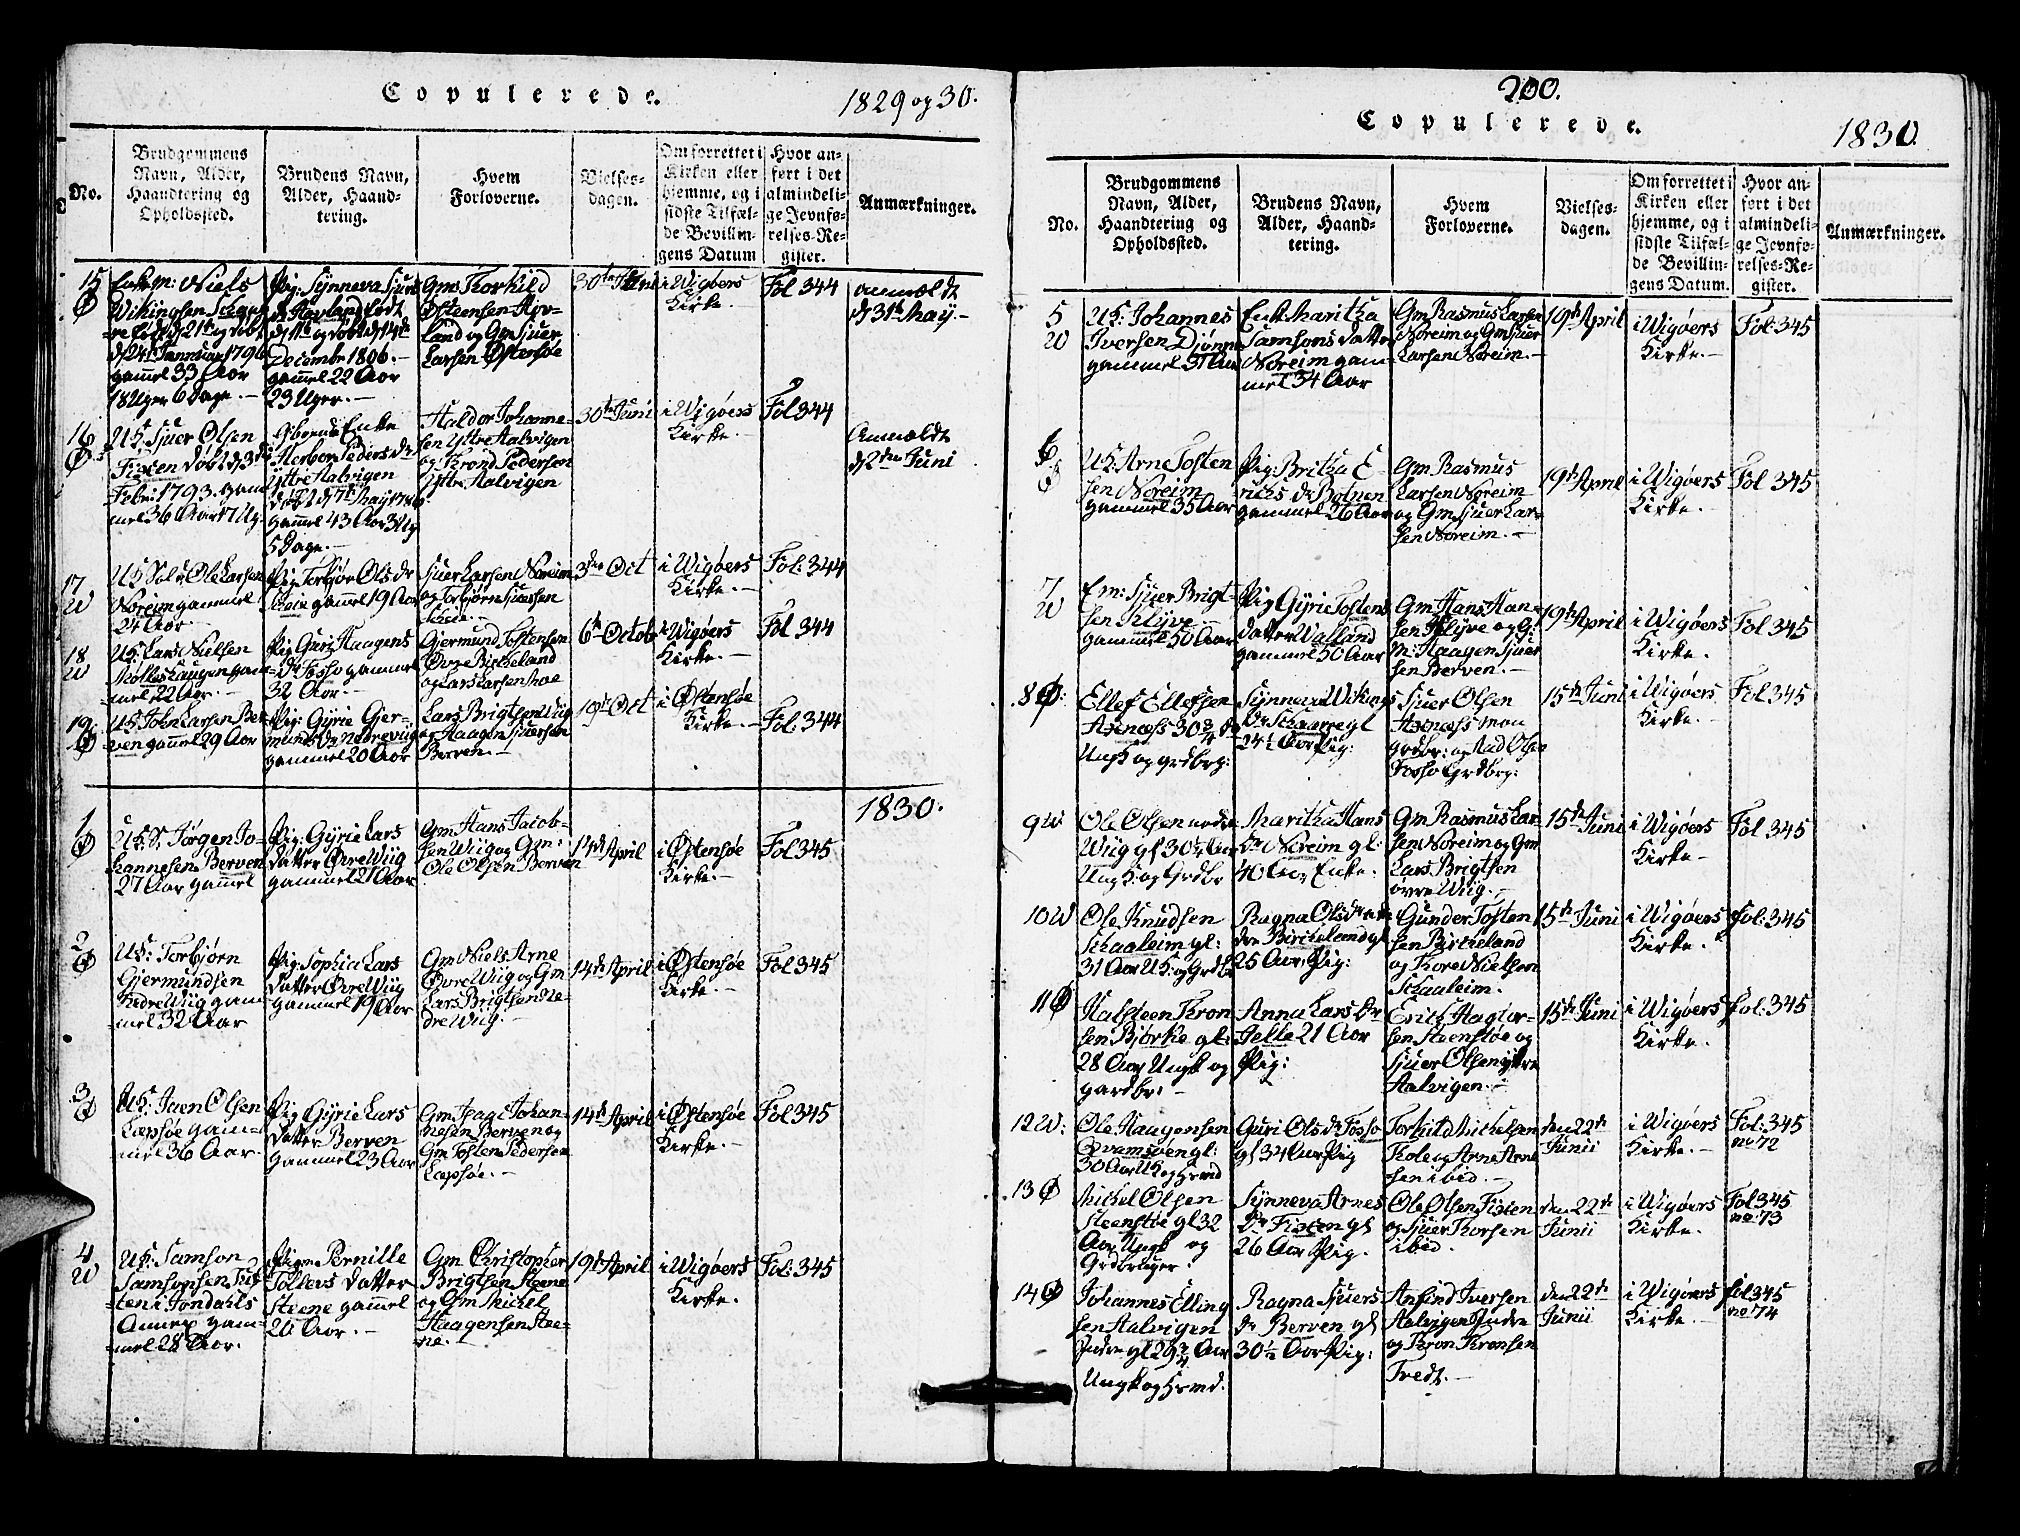 Copulerede.
1829 og 30.
No.
Brudgommens
Navn, Alder,
Haandtering og
Opholdssted.
Brudens Navn,
Alder, Haand-
tering.
Hvem
Forloverne.
Vielses-
dagen.
Om forrettet i
Kirken eller
hjemme, og i
sidste Tilfæl-
de Bevillin-
gens Datum
Hvor an-
ført i det
almindeli-
ge Jevnfø-
relses-Re-
gister.
Anmærkninger.
15
Enkem: Niels
Wikingsen
født d 21de og døbt
d 24de Januar 1796
gammel 33 Aar
18 Uger 6 Dage.
Pig: Synneva Sjurs
Dr Aavland født
d 11te og døbt d 14de
December 1806.
gammel 22 Aar
23 Uger.
Gm: Thorkild
Østeensen Aav-
land og Gm Sjuer
Larsen Østensøe
30te Juni
i Wigøers
Kirke.
Fol 344
anmældt
d 31te May.
16
UK. Sjuer Olsen
Fixen døbt d 3de
Febr: 1793. gam
mel 36 Aar 17 Ug.
Enke
Herbor Peders Dr
Yttre Aalvigen
døbt d 7de May 1786
gammel 43 Aar 3 Ug
5 Dage.
Haldor Johanne-
sen Yttre Aalvigen
og Trond Pedersen
Yttre Aalvigen
30te Juni
i Wigøers
Kirke.
Fol 344
Anmældt
d 2den Juni
17
W
UK Sol: Ole Larsen
Noreim gammel
24 Aar.
Pig: Torbjør Ols Dr
Skeie gammel 19 Aar
Sjuer Larsen Noreim
og Torbjørn Sjursen
Skeie.
3de Oct
i Wigøers
Kirke.
Fol: 344
18
W
UK: Lars Nielsen
Molleshaugen gam-
mel 22 Aar.
Pig: Guri Haagens
Dr Fosso gammel
32 Aar.
Gjermund Tostensen
Øvre Birkeland
og Lars Larsen Moe
6te Octob
i Wigøers
Kirke.
Fol 344
19
Ø
UK John Larsen Ber-
ven gammel 29 Aar
Pig: Gyrie Gjer-
munds Dr Nedre Wiig
gammel 20 Aar
Lars Brigtsen Wiig
og Haagen Sjuersen
Berven.
10de Oct
i Østensøe
Kirke.
Fol: 344
1830.
1
Ø
UK S. Jørgen Jo-
hannesen Berven
27 Aar gammel
Pig: Gyrie Lars
Datter Øvre Wiig
gammel 21 Aar
Gm Hans Jacob-
sen Wiig og Gm:
Ole Olsen Berven
14de April
i Østensøe
Kirke.
Fol 345
2
Ø
UK: Torbjørn
Gjermundsen
Nedre Wiig gam-
mel 32 Aar
Pig: Sophia Lars
Datter Øvre Wiig
gammel 19 Aar
Gm Niels Arne
Øvre Wiig og Gm
Lars Brigtsen Ne-
dre Wiig.
14de April
i Østensøe
Kirke.
Fol 345
3
Ø
UK: Jaen Olsen
Læpsøe gam-
mel 36 Aar.
Pig Gyrie Lars
Datter Berven
gammel 23 Aar
Gm: Isaac Johan-
nesen Berven og
Gm Tosten Pedersen
Læpsøe.
14de April
i Østensøe
Kirke.
Fol 345
4
W
UK: Samson
Samsonsen
i Jondahls
Annex gam-
mel 28 Aar.
Pigen Pernille
Tollevs Datter
Steene gammel
26 Aar.
Gm Christopher
Brigtsen Steene
og Gm Michel
Haagensen Stee-
ne.
19de April
i Wigøers
Kirke.
Fol: 345
200.
Copulerede.
1830.
No.
Brudgommens
Navn, Alder,
Haandtering og
Opholdssted.
Brudens Navn,
Alder, Haand-
tering.
Hvem
Forloverne.
Vielses-
dagen.
Om forrettet i
Kirken eller
hjemme, og i
sidste Tilfæl-
de Bevillin-
gens Datum.
Hvor an-
ført i det
almindeli-
ge Jevnfø-
relses-Re-
gister.
Anmærkninger.
5
W
UK: Johannes
Iversen Djønne
gammel 31 Aar
Enk Maritha
Samsons Datter
Noreim gam-
mel 34 Aar
Gm Rasmus Larsen
Noreim og Gm Sjuer
Larsen Noreim.
19de April
i Wigøers
Kirke.
Fol: 345
6
Ø
UK: Arne Tosten
sen Noreim
gammel 35 Aar
Pig: Britha E-
richs Dr Botnen
gammel 26 Aar
Gm Rasmus
Larsen Noreim
og Gm Sjuer Lar-
sen Noreim.
19de April
i Wigøers
Kirke.
Fol 345
7
W
Em: Sjuer Brigt-
sen Klyve
gammel 50 Aar
Pig Gyrie Tostens
datter Walland
gammel 50 Aar
Gm Hans Han-
sen Klyve og G-
m: Haagen Sjuer
sen Berven.
19de April
i Wigøers
Kirke.
Fol 345
8 Ø:
Ellef Ellefsen
Axnæss 30 3/4 Aar
Ungk og grdbrg:
Synneva Wikings
Dr Skaare gl
24 1/2 Aar Pig:
Sjuer Olsen
Axnæss
grdbr: og Aad Olsen
Fosso Grdbrg:
15de Juni
i Wigøers
Kirke.
Fol 345
9 W
Ole Olsen nedre
Wiig gl 30 1/4 Aar
Ung K. og Grdbr
Maritha Hans
Dr Noreim gl:
40 Aar Enke.
Gm Rasmus Lar
sen Noreim og Gm
Lars Brigtsen
øvre Wiig.
15de Juni
i Wigøers
Kirke
Fol 345
10 W
Ole Knudsen
Skaaleim gl:
31 Aar UK: og Grdbr
Ragna Ols Dr ne
dre Birkeland gl
25 Aar Pig:
Gunder Tosten
sen Birkeland
og Thore Nielsen
Skaaleim.
15de Juni
i Wigøers
Kirke.
Fol: 345
11 Ø
Halsteen Thron
sen Bjørke gl:
28 Aar Ungk og
gardbr:
Anna Lars Dr
Jelle 21 Aar
Pig:
Erik Hagtor-
sen Steenstøe og
Sjuer Olsen yttre
Aalvigen.
15de Juni
i Wigøers
Kirke.
Fol: 345
12 W:
Ole Haagensen
Qvamsøen gl:
30 Aar UK og Hsmd
Guri Ols Dr Fosso
gl 34 Aar Pig
Torkild Michelsen
og Arne Arne
sen ibid.
den 22de
Junii
i Wigøers
Kirke.
Fol: 345
no 72
13 Ø
Michel Olsen
Steenstøe gl 32
Aar Ungk og
Grdbruger.
Synneva Arnes
Dr Fixen gl
26 Aar Pig.
Ole Olsen Fixen
og Sjuer Thorsen
ibid.
den 22de
Junii
i Wigøers
Kirke.
Fol 345
no: 73
14 Ø
Johannes Elling
sen Aalvigen
Indre gl 29 3/4 Aar
Ungk og Hsmd.
Ragna Sjuers
Dr Berven gl
30 1/2 Aar Pig:
Anfind Iversen
Aalvigen Indre
og Thron Thronsen
Tredt.
den 22de
Junii
i Wigøers
Kirke.
Fol 345
no 74